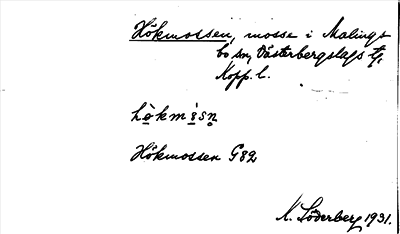 Hökmossen, mosse i Malings
bo sn, Västerbergslags tg,
Kopp. l.
hö̀kmòsn̥
Hökmossen G82
N. Söderberg 1931.